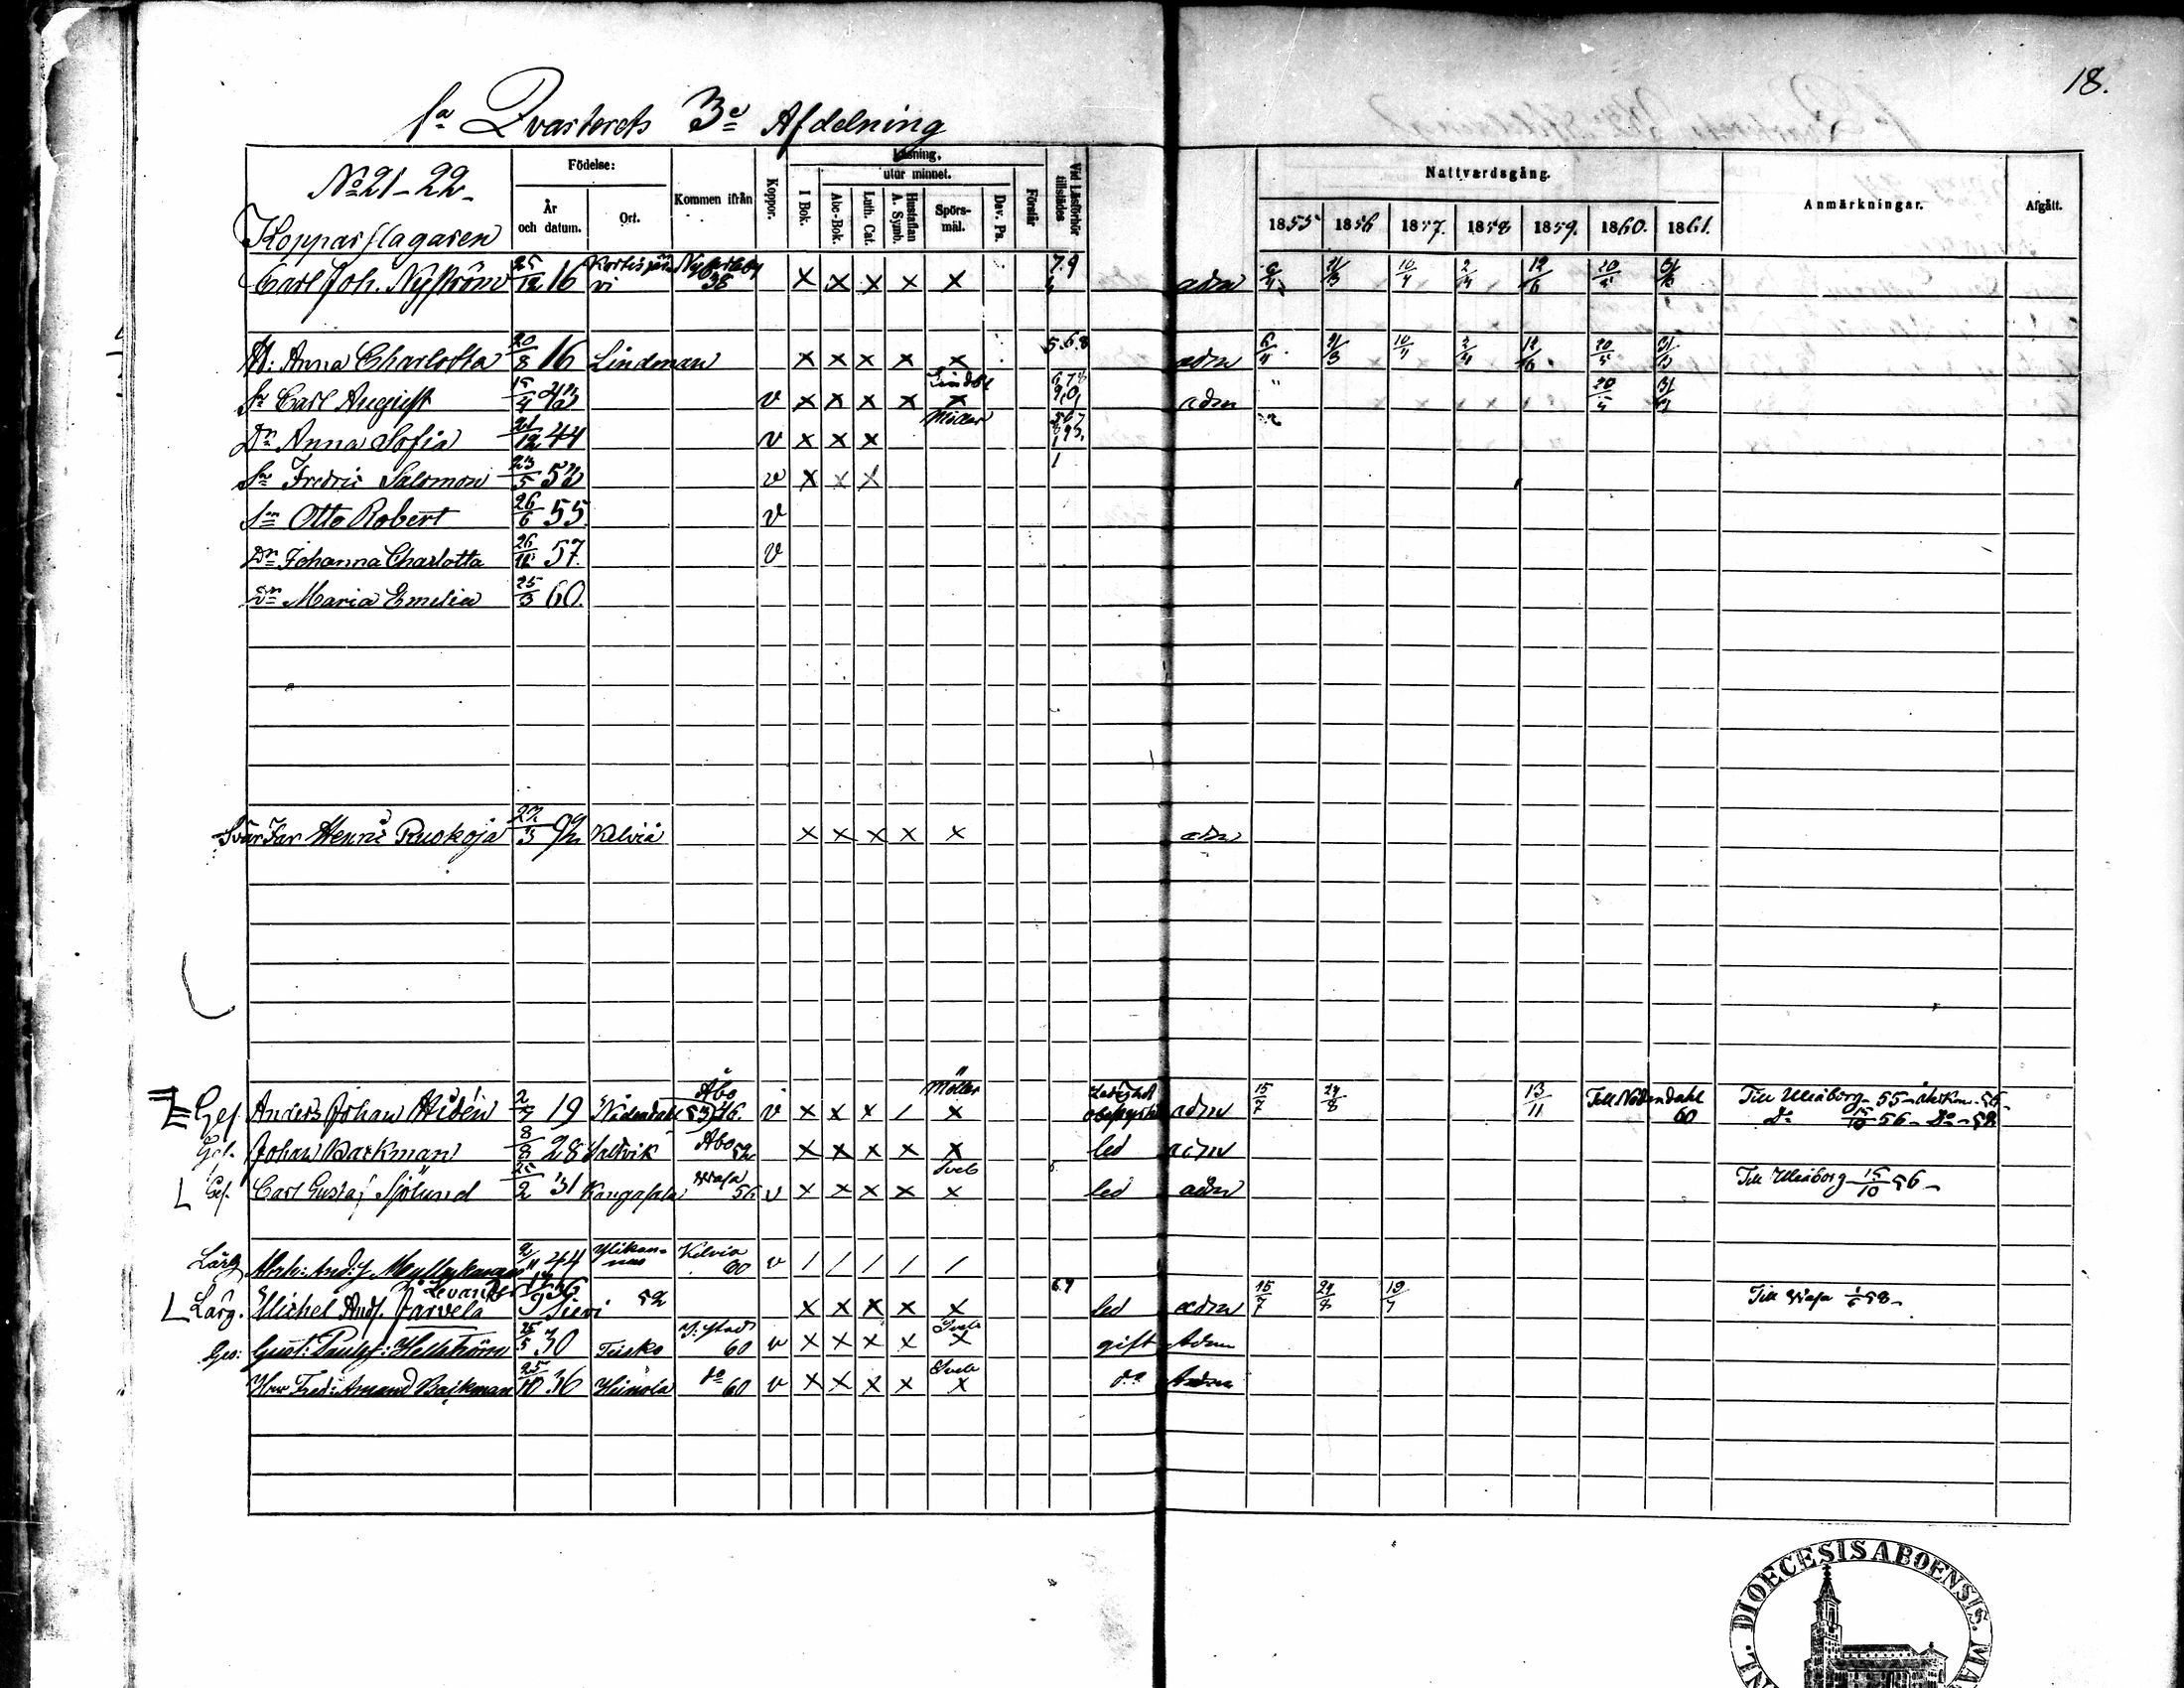 18.
1a Qvarterets 3e Afdelning
No 21-22.
Födelse:
År och datum.
Ort.
Kommen ifrån
Koppor.
Läsning.
utur minnet.
I Bok.
Abc-Bok.
Luth. Cat.
Hustaflan A. Symb.
Spörsmål.
Dav. Ps.
Förstår
Vid Läsförhör tillstädes
Nattvardsgång.
1855 1856 1857. 1858 1859. 1860. 1861.
Anmärkningar.
Afgått.
Kopparslagaren
Carl Joh. Nyström 25/12 16 Nykarleby 38 x x x x x 7.9 adm 6/4 21/3 10/4 2/4 12/6 20/5 31/3
H: Anna Charlotta 20/8 16 Lindman x x x x x 5.6.8 adm 6/4 21/3 10/4 2/4 12/6 20/5 31/3
Sn Carl August 15/4 42 v x x x x x adm 20/5 31/3
Dr Anna Sofia 21/12 44 v x x x Möller
Sn Fredric Salomon 23/5 52 v x x x 1
Sn Otto Robert 26/6 55 v
Dr Johanna Charlotta 57. v
Dr Maria Emelia 25/3 60.
Svär Far Henric Ruokoja Kelviå x x x x x adm
Gef Anders Johan Widén 2/7 19 Nådendahl Åbo 53 46. v x x x / x Möller adm 15/7 29/8 13/11 Till Nådendahl 60 Till Uleåborg 55 återkom 56
Do 15/10 56 Do 58
Gef. Johan Barkman 8/8 28 Saltvik Åbo 52 x x x x x led adm
L Gef. Carl Gustaf Sjölund 25/2 31 Kangasala Wasa 56 v x x x x x Sveb led adm Till Uleåborg 15/10 56
Lärg And: J Myllykangas 9/11 44 Ylikannus Kelvia 60 v / / / / /
L Lärg. Michel And. Järvelä Levander 36 Sievi 52 x x x x x 6.7 led adm 15/7 29/8 19/7 Till Wasa 1/6 58
Ges: Gust: Paulus: Hellström 25/5 30 Tusko 60 v x x x x x Sveb gift Adm
Hu Fred: Amand Backman 25/10 36 Heinola do 60 v x x x x x Sveb do Adm
DIOECESIS ABOENSIS.